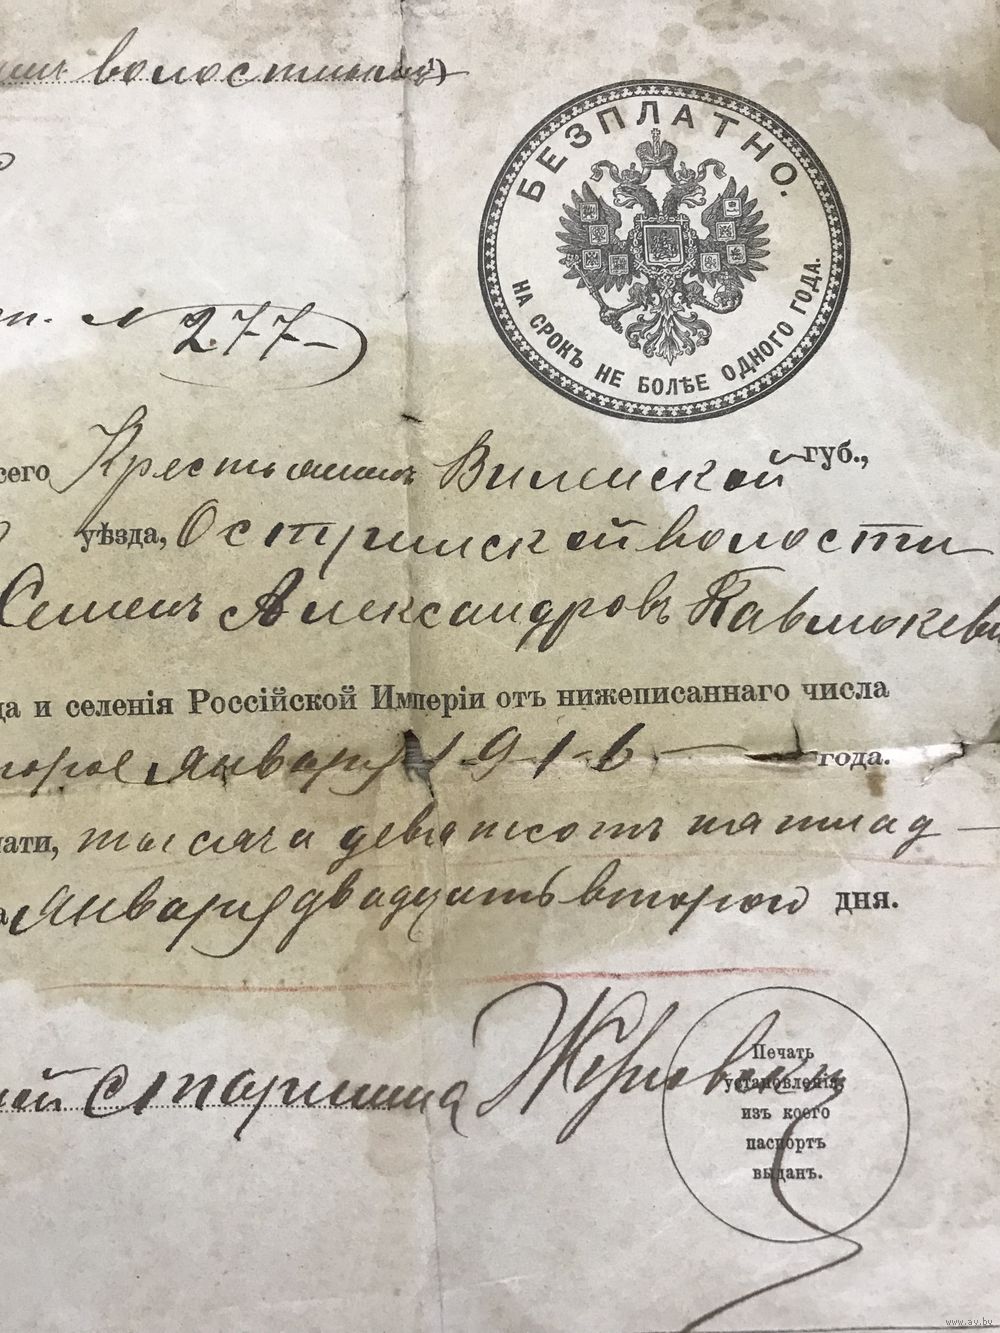 волостным ¹)
БЕЗПЛАТНО.
НА СРОКЪ НЕ БОЛѢЕ ОДНОГО ГОДА.
№ 277
сего Крестьянинъ Виленской губ.,
уѣзда, Остринской волости
Семенъ Александровъ Павлюкеви
да и селенія Россійской Имперіи отъ нижеписаннаго числа
торое января 1916 года.
чати, тысяча девятьсотъ пятнад
Января двадцать второго дня.
ной старшина
Печать
установленія,
изъ коего
паспортъ
выданъ.
www.av.by